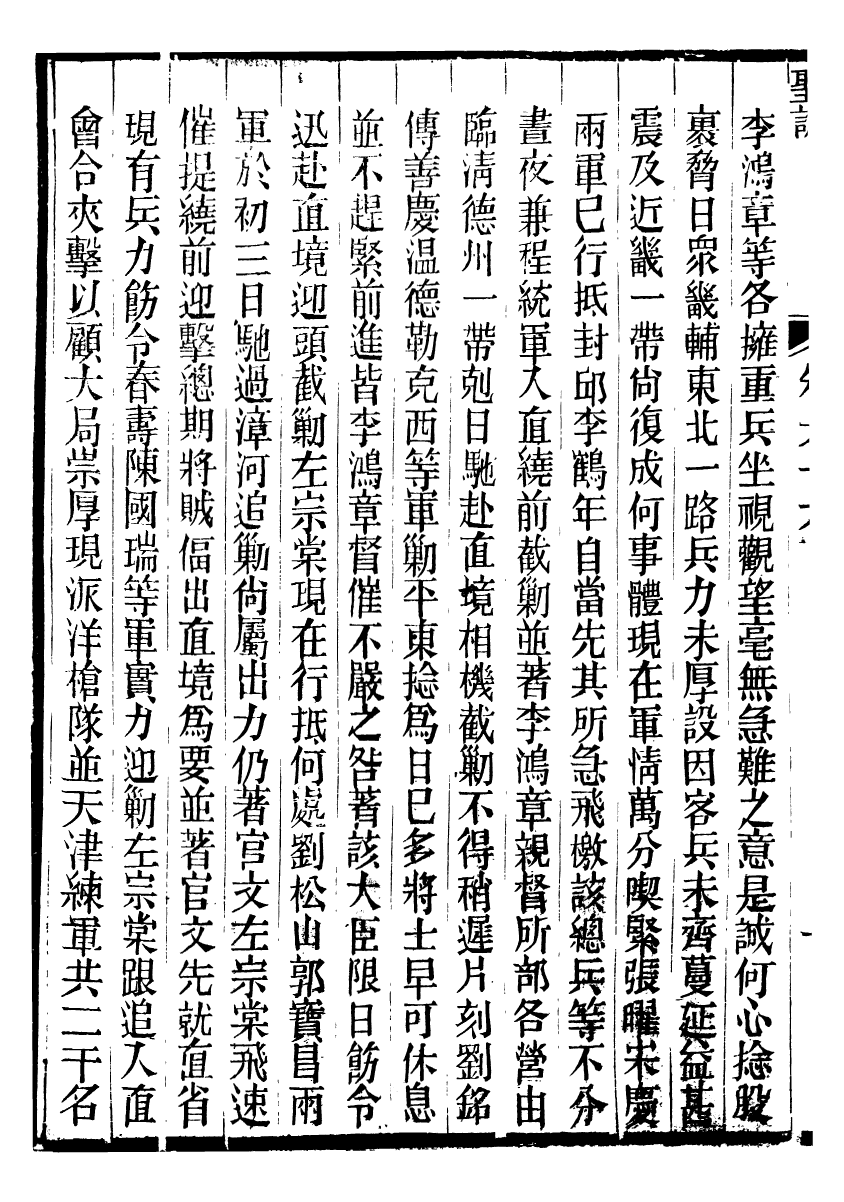 聖訓
李鴻章等各擁重兵坐視觀望毫無急難之意是誠何心捻股
裹脅日眾畿輔東北一路兵力未厚設因客兵未齊蔓延益甚
震及近畿一帶尙復成何事體現在軍情萬分喫緊張曜宋慶
兩軍已行抵封邱李鶴年自當先其所急飛檄該總兵等不分
晝夜兼程統軍入直繞前截勦並著李鴻章親督所部各營由
臨淸德州一帶剋日馳赴直境相機截勦不得稍遲片刻劉銘
傳善慶溫德勒克西等軍勦平東捻爲日已多將士早可休息
並不趕緊前進皆李鴻章督催不嚴之咎著該大臣限日飭令
迅赴直境迎頭截勦左宗棠現在行抵何處劉松山郭寶昌兩
軍於初三日馳過漳河追勦尙屬出力仍著官文左宗棠飛速
催提繞前迎擊總期將賊偪出直境爲要並著官文先就直省
現有兵力飭令春壽陳國瑞等軍實力迎勦左宗棠跟追入直
會合夾擊以顧大局崇厚現派洋槍隊並天津練軍共二千名